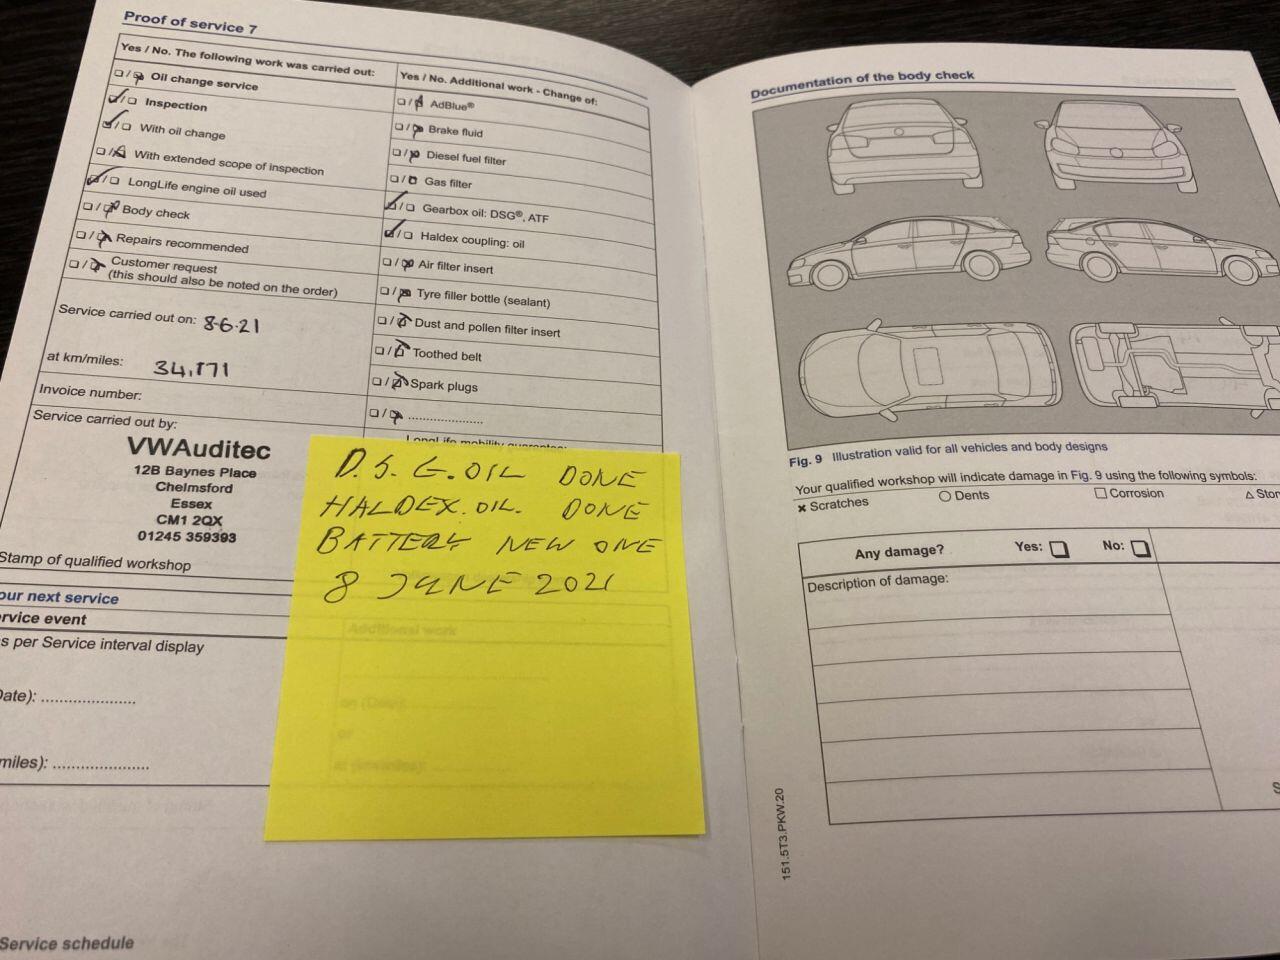 Proof of service 7
Yes / No. The following work was carried out:
Oil change service
Inspection
With oil change
With extended scope of inspection
LongLife engine oil used
Body check
Repairs recommended
Customer request
(this should also be noted on the order)
Service carried out on: 8-6-21
at km/miles: 34,171
Invoice number:
Service carried out by:
VWAuditec
12B Baynes Place
Chelmsford
Essex
CM1 2QX
01245 359393
Stamp of qualified workshop
our next service
rvice event
s per Service interval display
Date): ....................
miles): ....................
Service schedule
Yes / No. Additional work - Change of:
AdBlue®
Brake fluid
Diesel fuel filter
Gas filter
Gearbox oil: DSG®, ATF
Haldex coupling: oil
Air filter insert
Tyre filler bottle (sealant)
Dust and pollen filter insert
Toothed belt
Spark plugs
....................
LongLife mobility guarantee:
D.S.G.OIL DONE
HALDEX.OIL. DONE
BATTERY NEW ONE
8 JUNE 2021
Additional work
on (Date):
or
Documentation of the body check
Fig. 9 Illustration valid for all vehicles and body designs
Your qualified workshop will indicate damage in Fig. 9 using the following symbols:
x Scratches ○ Dents □ Corrosion △ Ston
Any damage? Yes: No:
Description of damage:
151.5T3.PKW.20